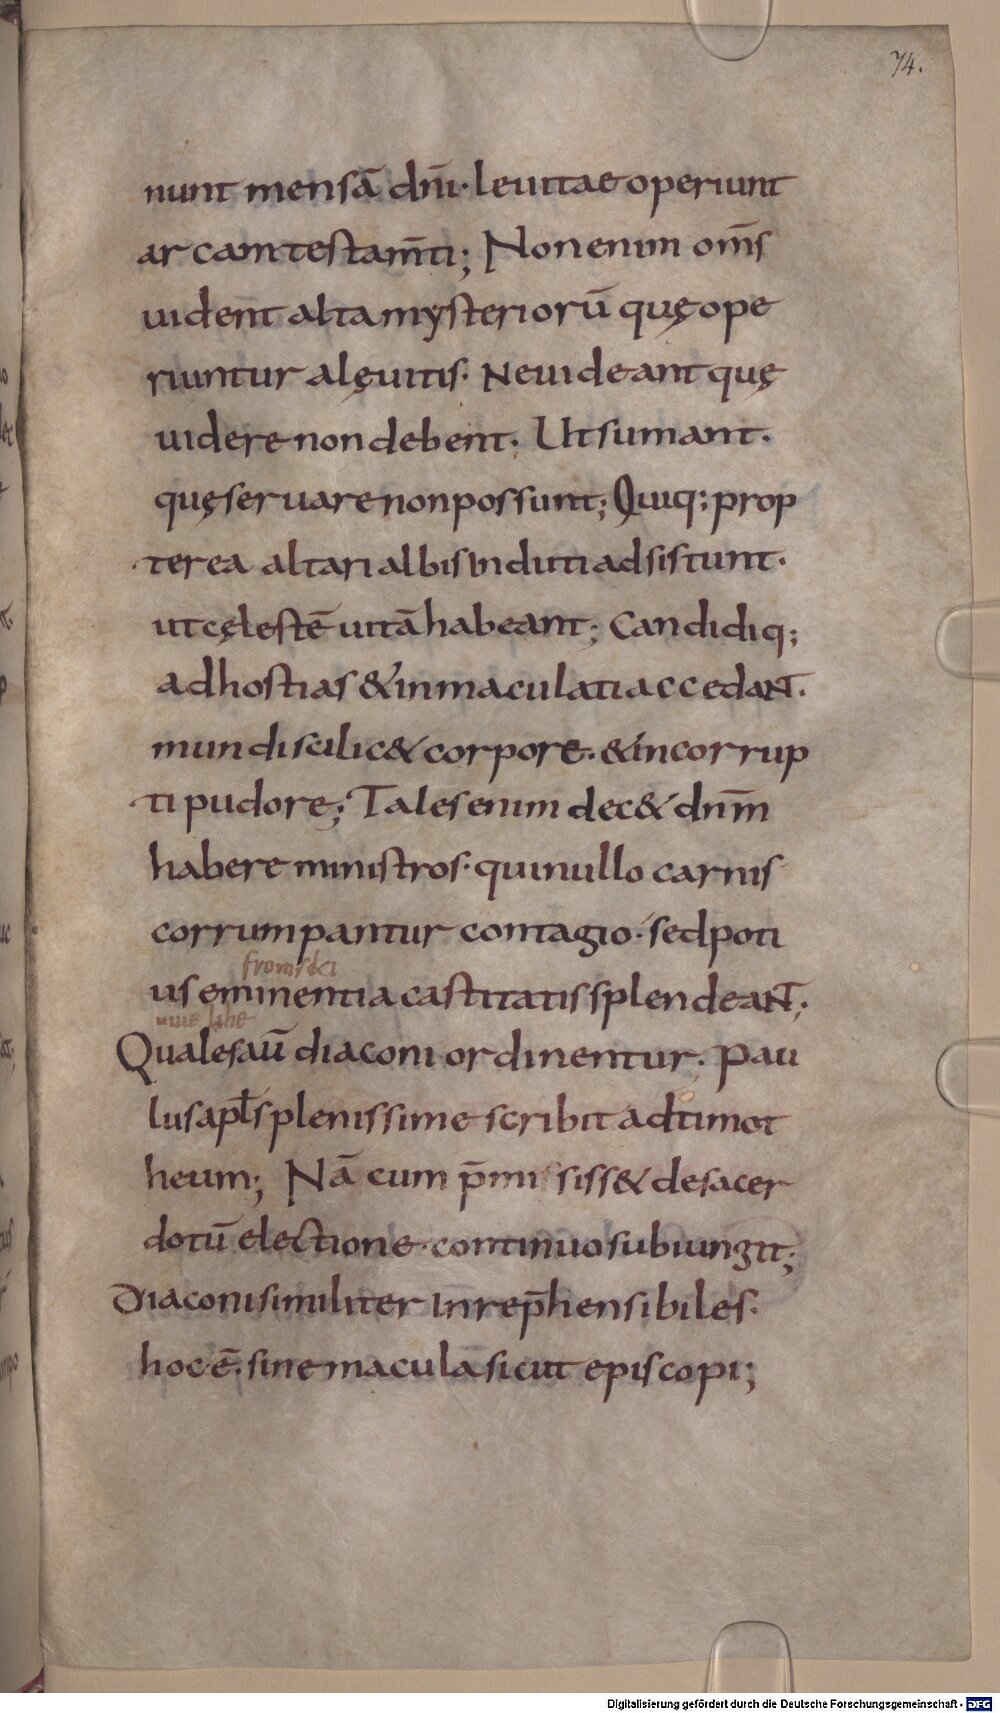 74.
nunt mensā dn̄i· leuitae operiunt
arcam testam̄ti; Non enim om̄s
uident alta mysteriorū quę ope
riuntur a lęuitis· Ne uideant quę
uidere non debent· Ut sumant·
quę seruare non possunt; Quiq; prop
terea altari albis induti adsistunt·
ut cęlestē uitā habeant; Candidiq;
ad hostias & inmaculati accedant·
mundi scilic& corpore· & incorrup
ti pudore; Tales enim dec& dnm̄
habere ministros· qui nullo carnis
corrumpantur contagio· sed poti
us eminentia castitatis splendeant;
uue lihe
Quales aū diaconi ordinentur· Pau
lus apl̄s plenissime scribit ad timot
heum; Nā cum p̄misiss& de sacer
dotū electione· continuo subiungit;
Diaconi similiter inrep̄hensibiles·
hoc ē· sine macula sicut episcopi;
Digitalisierung gefördert durch die Deutsche Forschungsgemeinschaft - DFG